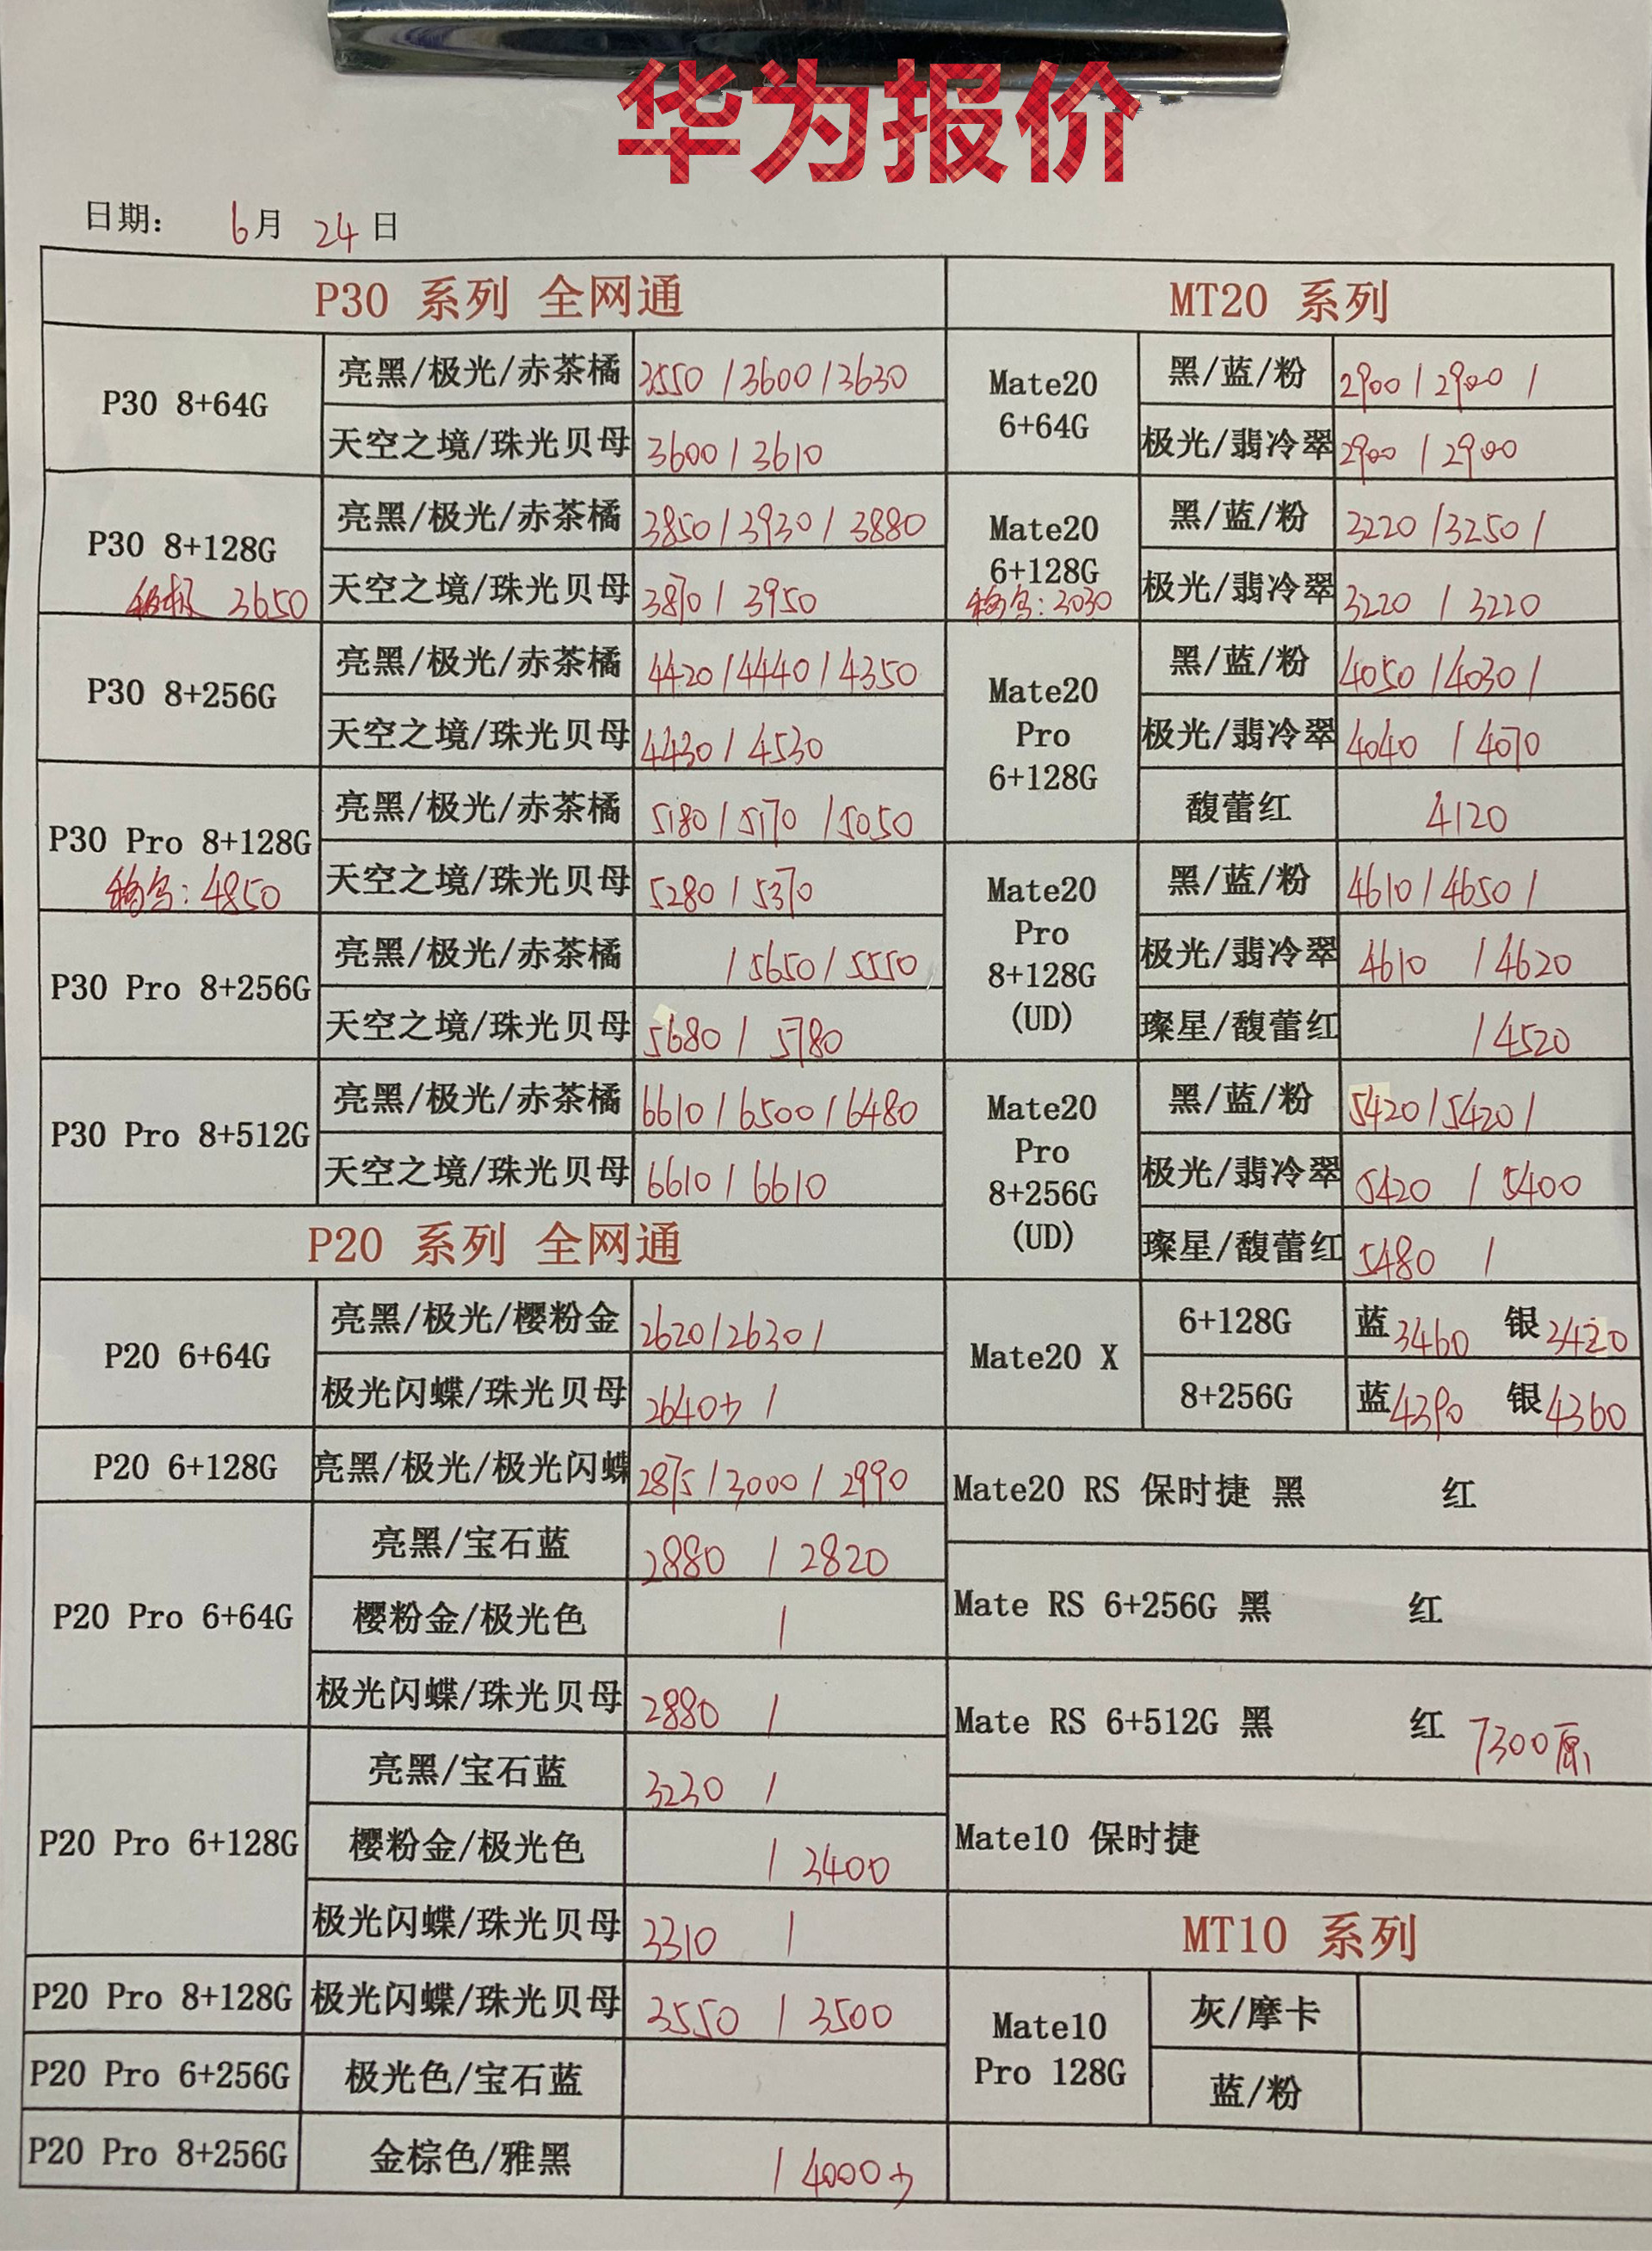 华为报价
日期: 6月 24日
P30 系列 全网通
P30 8+64G 亮黑/极光/赤茶橘 3550/3600/3630
天空之境/珠光贝母 3600/3610
P30 8+128G 亮黑/极光/赤茶橘 3850/3930/3880
3650 天空之境/珠光贝母 3870/3950
P30 8+256G 亮黑/极光/赤茶橘 4420/4440/4350
天空之境/珠光贝母 4430/4530
P30 Pro 8+128G 亮黑/极光/赤茶橘 5180/5170/5050
:4850 天空之境/珠光贝母 5280/5370
P30 Pro 8+256G 亮黑/极光/赤茶橘 /5650/5550
天空之境/珠光贝母 5680/5780
P30 Pro 8+512G 亮黑/极光/赤茶橘 6610/6500/6480
天空之境/珠光贝母 6610/6610
P20 系列 全网通
P20 6+64G 亮黑/极光/樱粉金 2620/2630/
极光闪蝶/珠光贝母 2640少/
P20 6+128G 亮黑/极光/极光闪蝶 2875/3000/2990
P20 Pro 6+64G 亮黑/宝石蓝 2880/2820
樱粉金/极光色 /
极光闪蝶/珠光贝母 2880/
P20 Pro 6+128G 亮黑/宝石蓝 3230/
樱粉金/极光色 /3400
极光闪蝶/珠光贝母 3310/
P20 Pro 8+128G 极光闪蝶/珠光贝母 3550/3500
P20 Pro 6+256G 极光色/宝石蓝
P20 Pro 8+256G 金棕色/雅黑 /4000少
MT20 系列
Mate20
6+64G
黑/蓝/粉 2900/2900/
极光/翡冷翠 2900/2900
Mate20
6+128G
:3030
黑/蓝/粉 3220/3250/
极光/翡冷翠 3220/3220
Mate20
Pro
6+128G
黑/蓝/粉 4050/4030/
极光/翡冷翠 4040/4070
馥蕾红 4120
Mate20
Pro
8+128G
(UD)
黑/蓝/粉 4610/4650/
极光/翡冷翠 4610/4620
璨星/馥蕾红 /4520
Mate20
Pro
8+256G
(UD)
黑/蓝/粉 5420/5420/
极光/翡冷翠 5420/5400
璨星/馥蕾红 5480/
Mate20 X 6+128G 蓝3460 银3420
8+256G 蓝4390 银4360
Mate20 RS 保时捷 黑 红
Mate RS 6+256G 黑 红
Mate RS 6+512G 黑 红 7300原
Mate10 保时捷
MT10 系列
Mate10
Pro 128G
灰/摩卡
蓝/粉